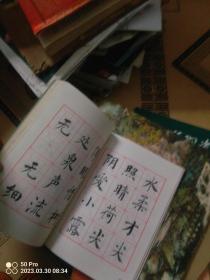 无处
泉
无声
细流
阴照水
爱晴柔
小荷才
露尖尖
50 Pro
2023.03.30 08:34